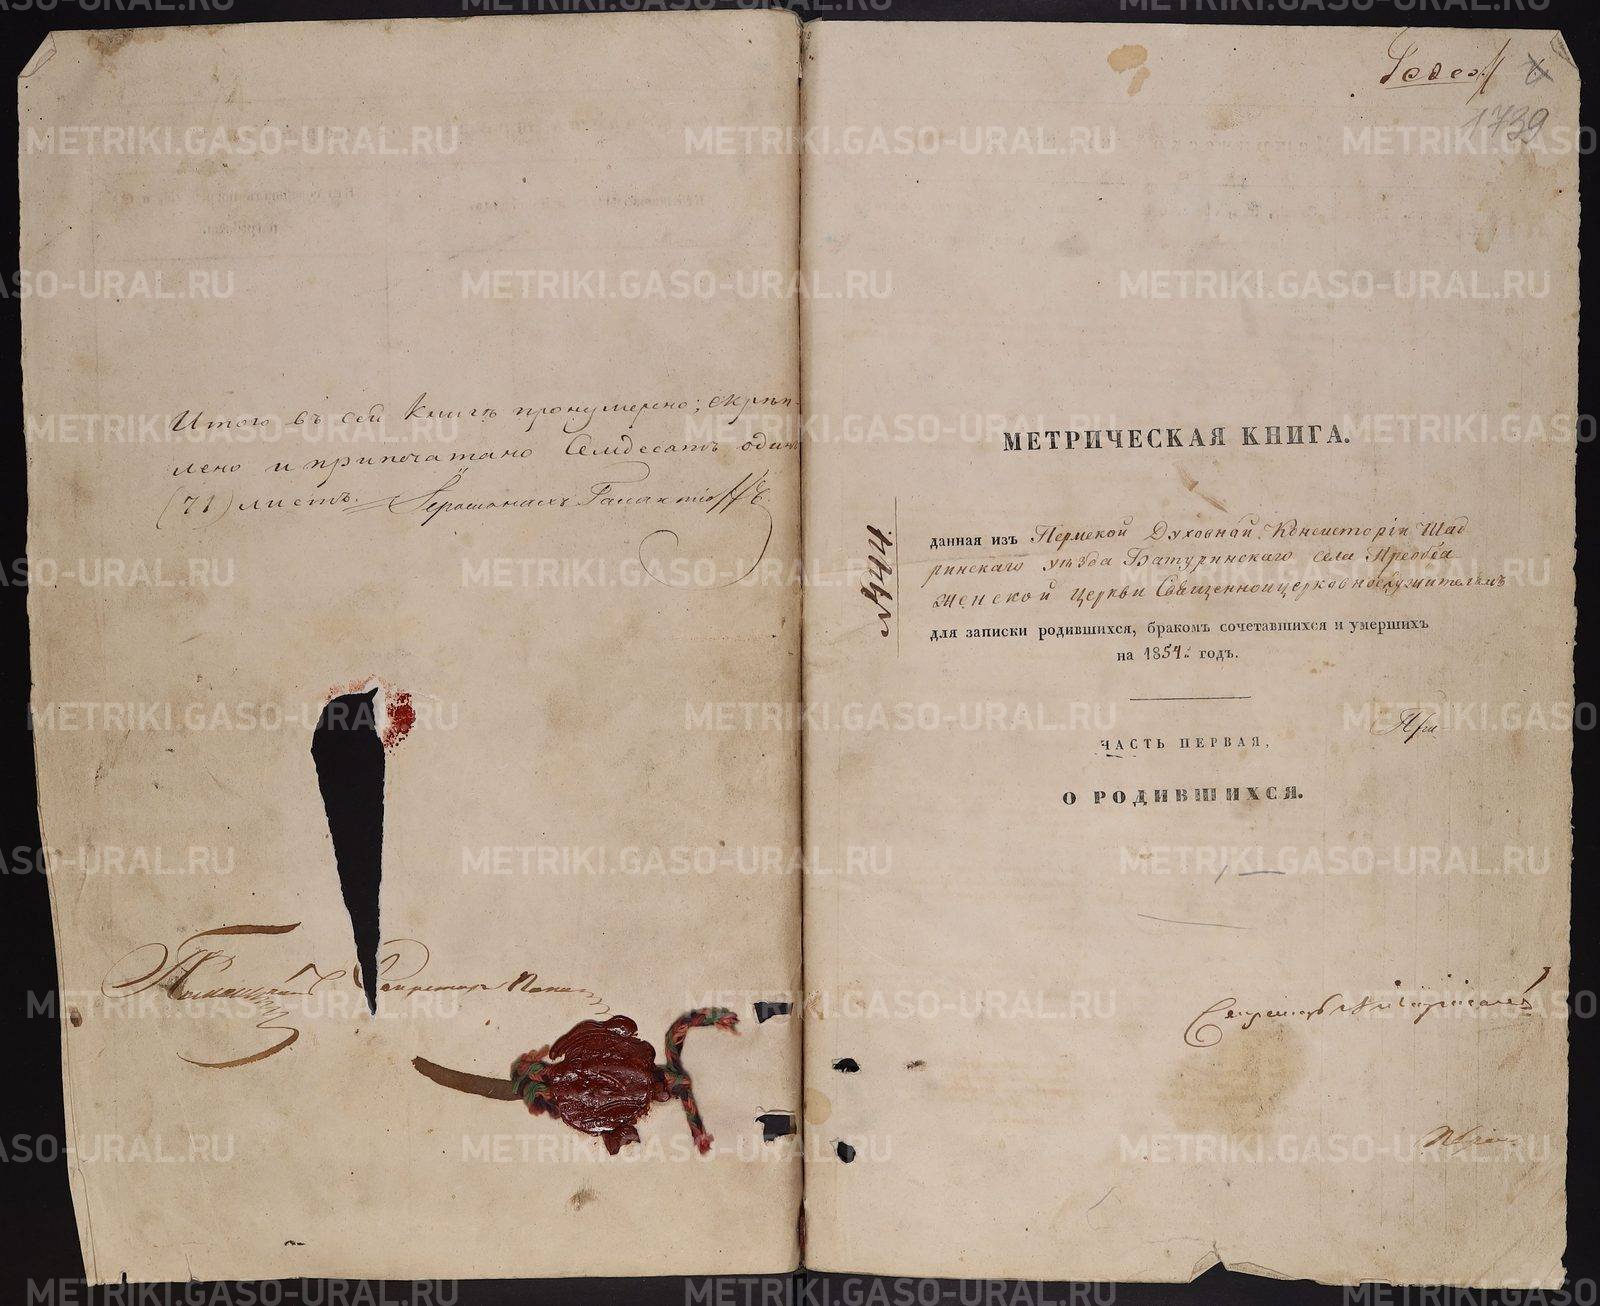 Итого въ сей книгѣ пронумерено; скрѣп-
лено и припечатано Семдесятъ одинъ
(71) листъ. Іеромонахъ
Секретарь
1739
МЕТРИЧЕСКАЯ КНИГА.
№444.
данная изъ Пермской Духовной Консисторіи Шад
ринскаго уѣзда Батуринскаго села Преобра
женской церкви Священноицерковнослужителямъ
для записки родившихся, бракомъ сочетавшихся и умершихъ
на 1854: годъ.
ЧАСТЬ ПЕРВАЯ,
О РОДИВШИХСЯ.
Секретарь
METRIKI.GASO-URAL.RU